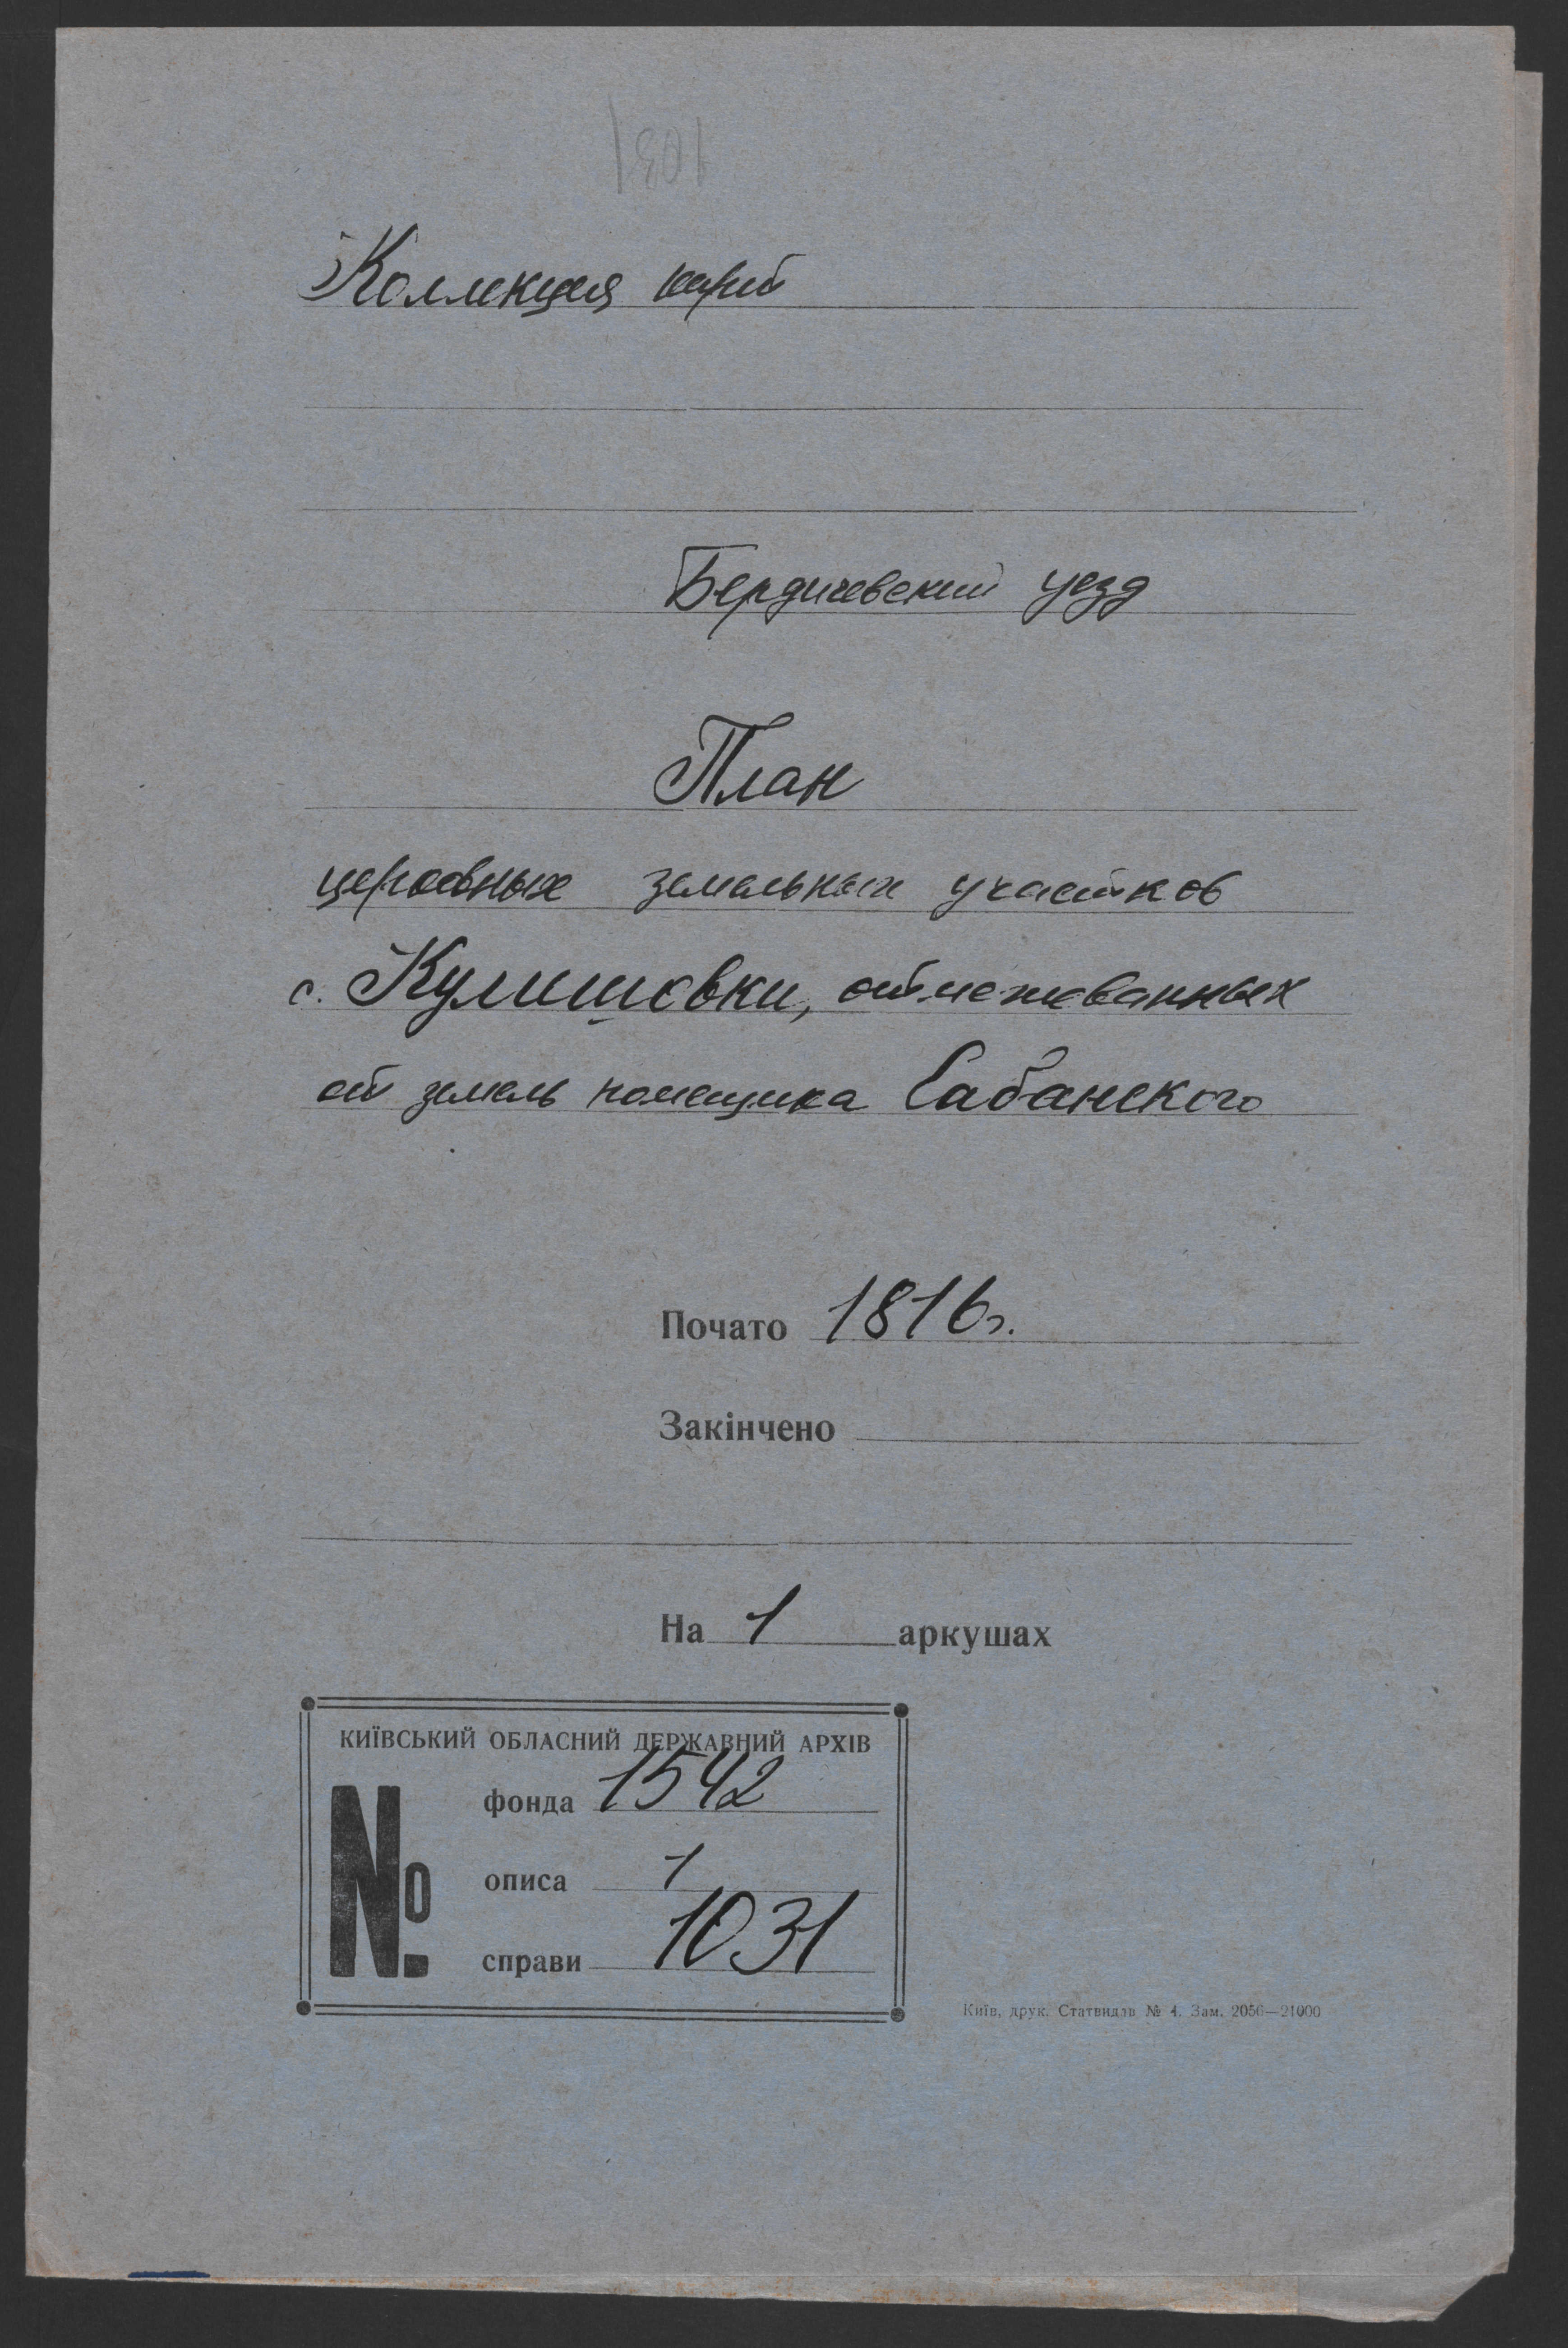 1031
Коллекция карт
Бердичевский уезд
План
церковных земельных участков
с. Кулишовки, отмежеванных
от земель помещика Сабанского
Почато 1816г.
Закінчено
На 1 аркушах
КИЇВСЬКИЙ ОБЛАСНИЙ ДЕРЖАВНИЙ АРХІВ
№
фонда 1542
описа 1
справи 1031
Київ, друк. Статвидав № 4. Зам. 2056—21000